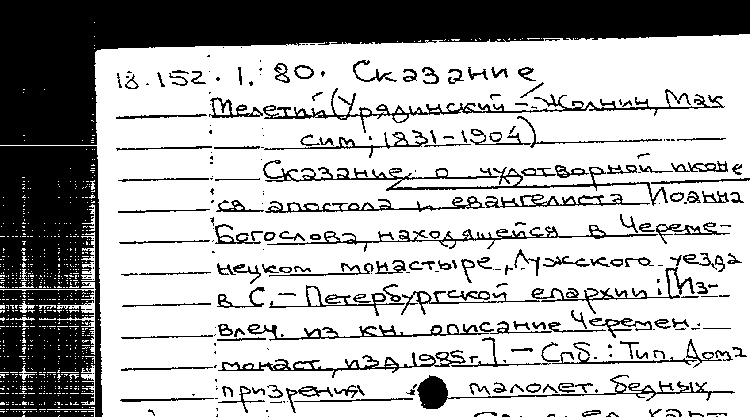 18.152.1.80. Сказание
Мелетий (Урядинский - Жолнин, Мак
сим ; 1831-1904)
Сказание о чудотворной иконе
св апостола и евангелиста Иоанна
Богослова, находящейся в Череме-
нецком монастыре, Лужского уезда
в С.- Петербургской епархии : [Из-
влеч. из кн. описание Черемен.
монаст., изд. 1985г.]. - Спб. : Тип. Дома
призрения малолет. бедных,